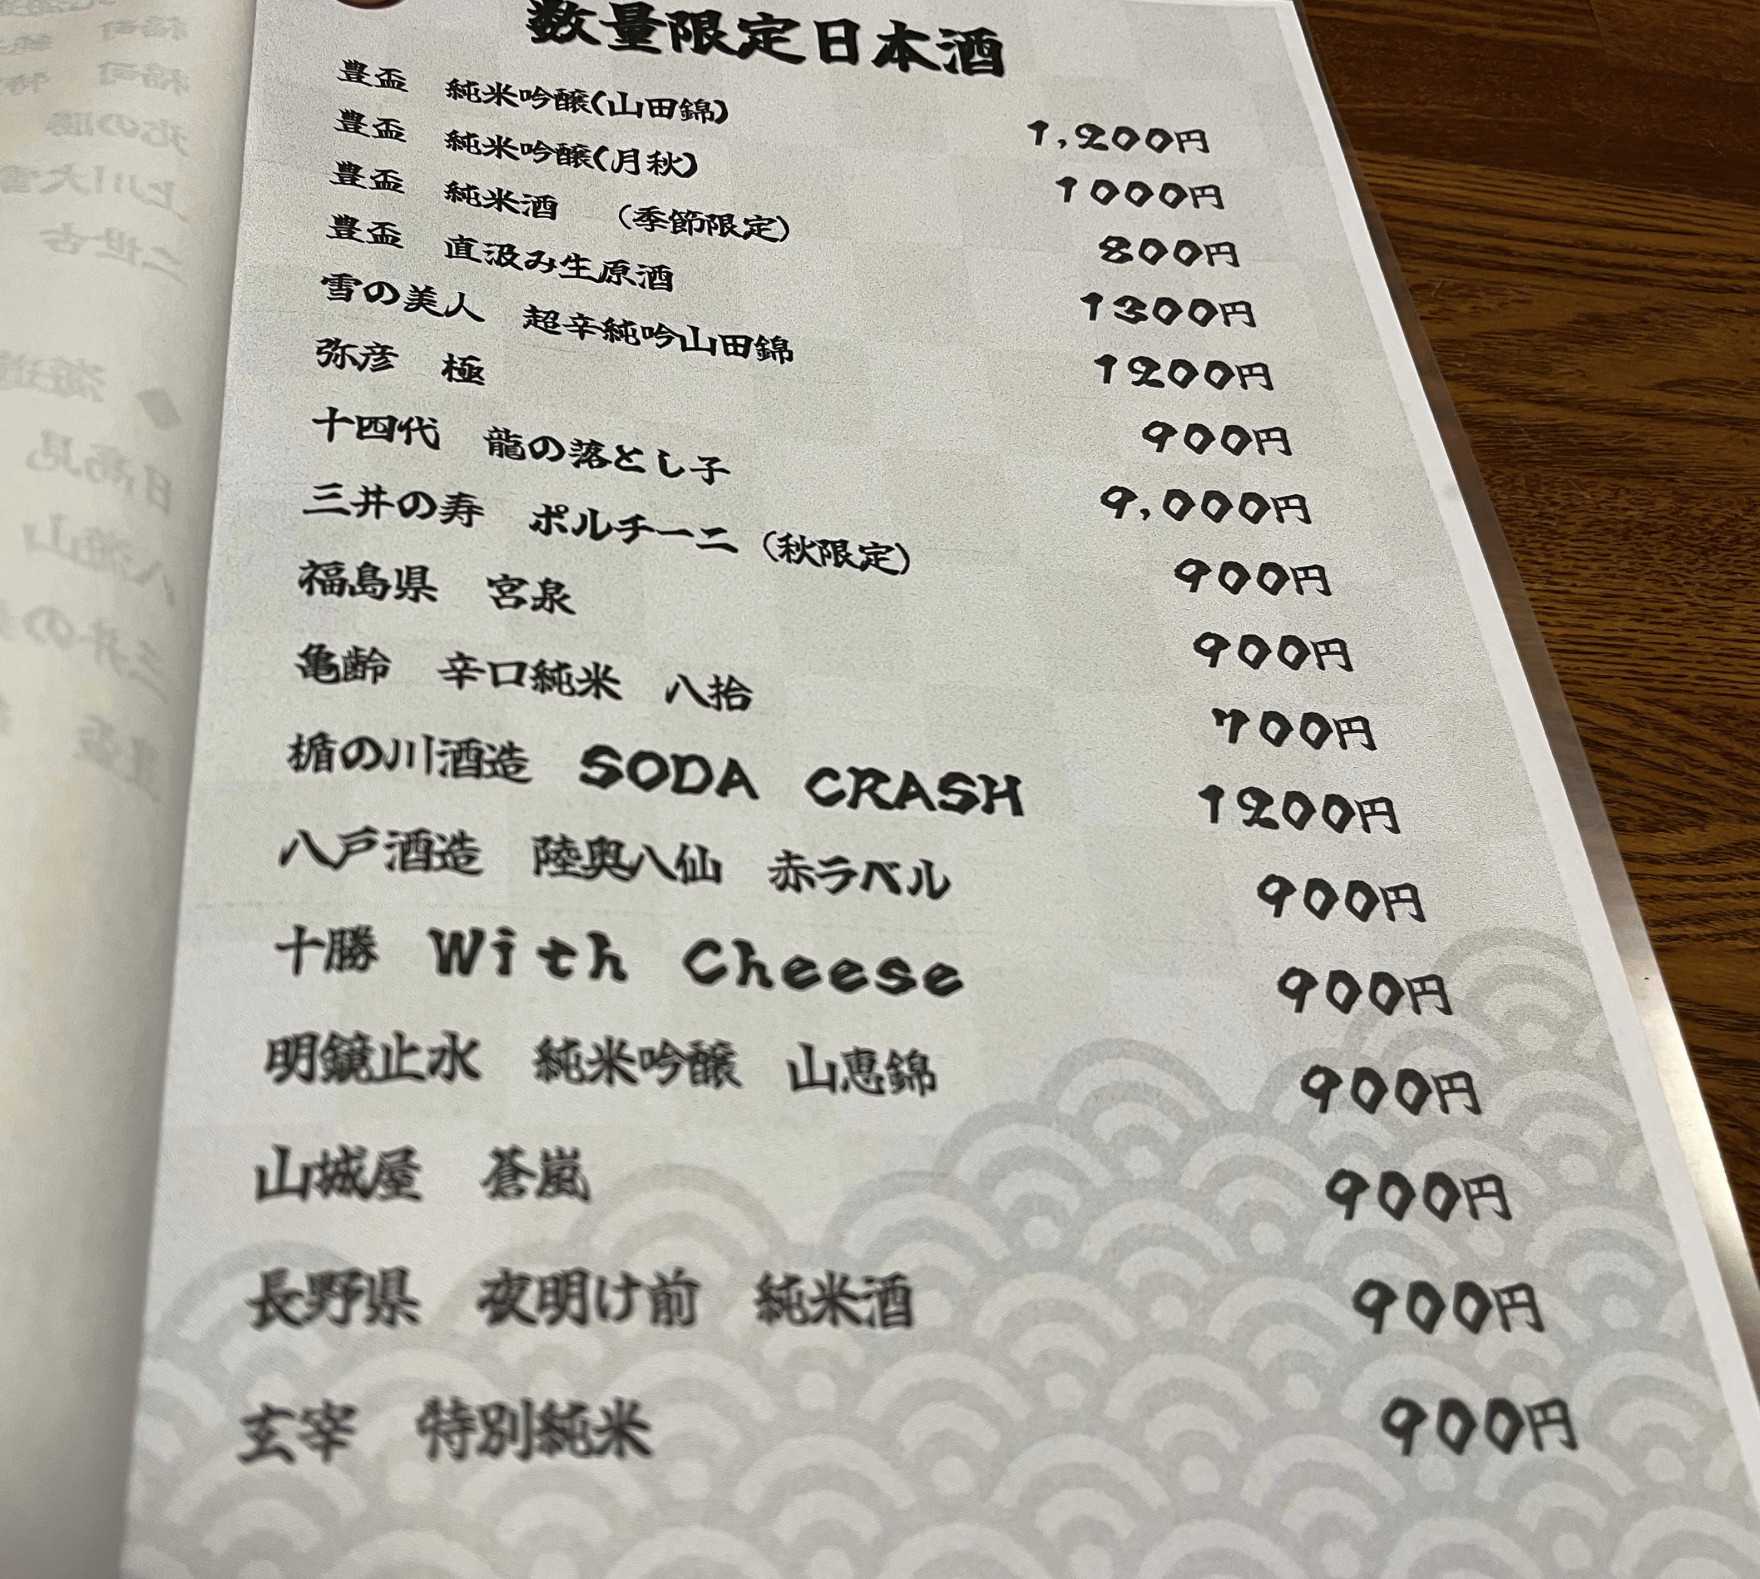 数量限定日本酒
豊盃 純米吟醸(山田錦) 1,200円
豊盃 純米吟醸(月秋) 1000円
豊盃 純米酒 (季節限定) 800円
豊盃 直汲み生原酒 1300円
雪の美人 超辛純吟山田錦 1200円
弥彦 極 900円
十四代 龍の落とし子 9,000円
三井の寿 ポルチーニ (秋限定) 900円
福島県 宮泉 900円
亀齢 辛口純米 八拾 700円
楯の川酒造 SODA CRASH 1200円
八戸酒造 陸奥八仙 赤ラベル 900円
十勝 With Cheese 900円
明鏡止水 純米吟醸 山恵錦 900円
山城屋 蒼嵐 900円
長野県 夜明け前 純米酒 900円
玄宰 特別純米 900円